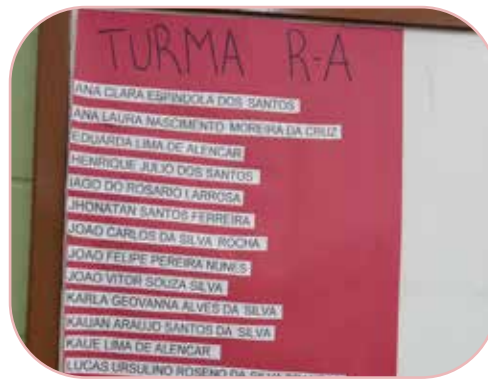 TURMA R-A
ANA CLARA ESPINDOLA DOS SANTOS
ANA LAURA NASCIMENTO MOREIRA DA CRUZ
EDUARDA LIMA DE ALENCAR
HENRIQUE JULIO DOS SANTOS
IAGO DO ROSARIO LARROSA
JHONATAN SANTOS FERREIRA
JOAO CARLOS DA SILVA ROCHA
JOAO FELIPE PEREIRA NUNES
JOAO VITOR SOUZA SILVA
KARLA GEOVANNA ALVES DA SILVA
KAUAN ARAUJO SANTOS DA SILVA
KAUE LIMA DE ALENCAR
LUCAS URSULINO ROSENO DA SILVA